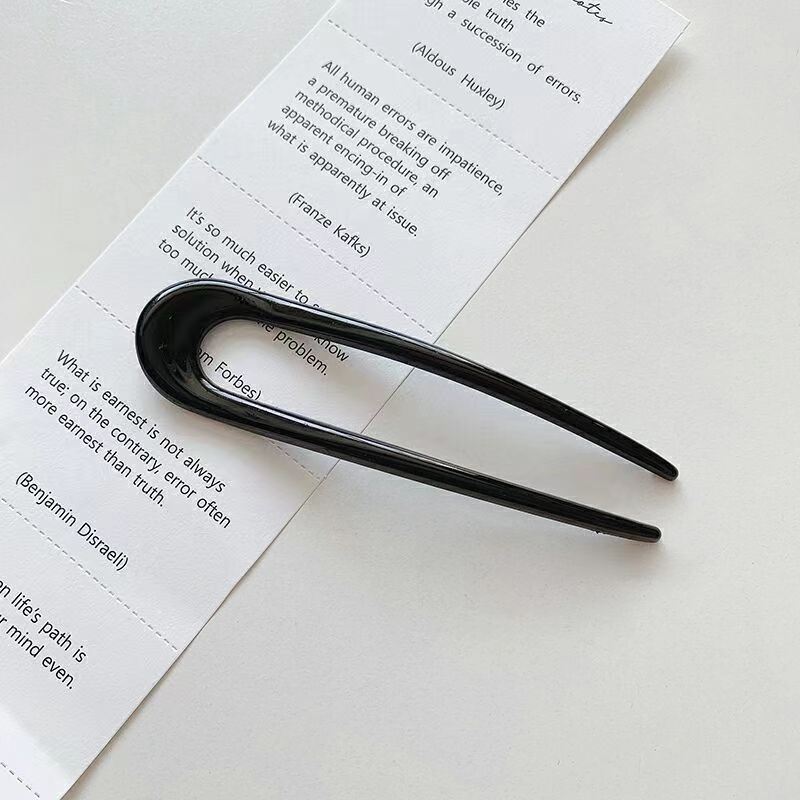 the
truth
a succession of errors.
(Aldous Huxley)
All human errors are impatience,
a premature breaking off
methodical procedure, an
apparent encing-in of
what is apparently at issue.
(Franze Kafks)
It's so much easier to
solution when
too much
know
problem.
Forbes)
What is earnest is not always
true; on the contrary, error often
more earnest than truth.
(Benjamin Disraeli)
life's path is
mind even.